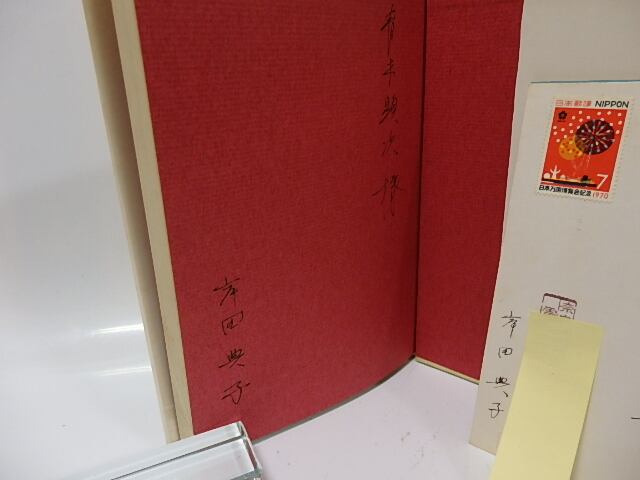 青木順次様
岸田典子
日本郵便 NIPPON
7
日本万国博覧会記念 1970
岸田典子